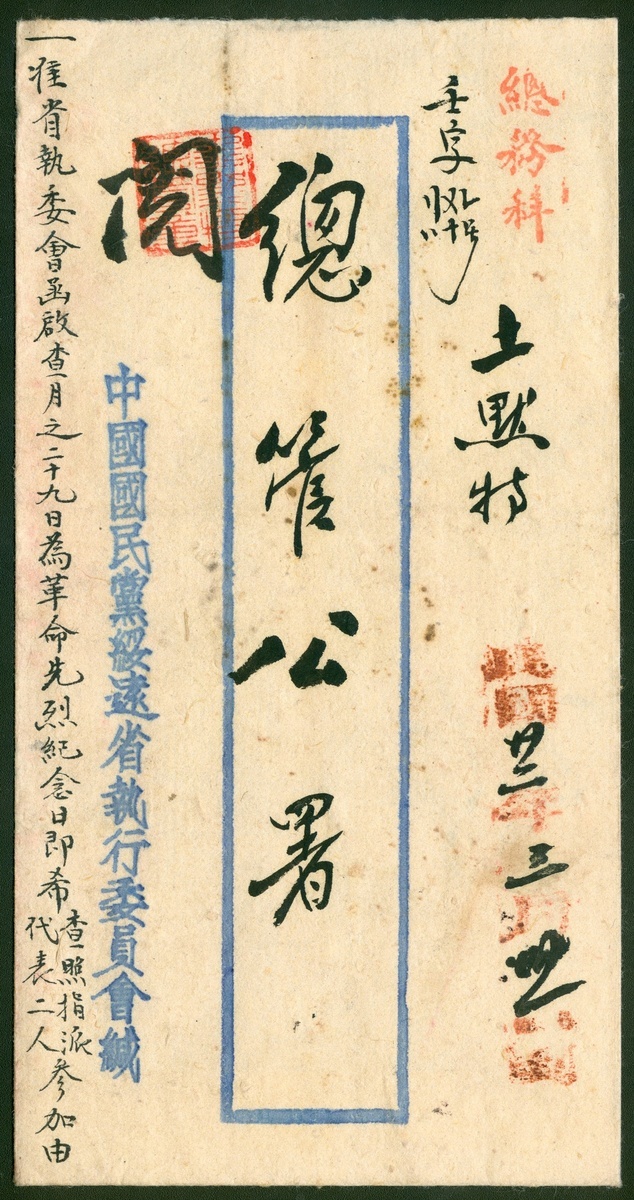 總務科
土默特
民國卅三年三月
總管公署
閱
中國國民黨綏遠省執行委員會緘
一准省執委會函啟查月之二十九日為革命先烈紀念日即希查照指派代表二人參加由